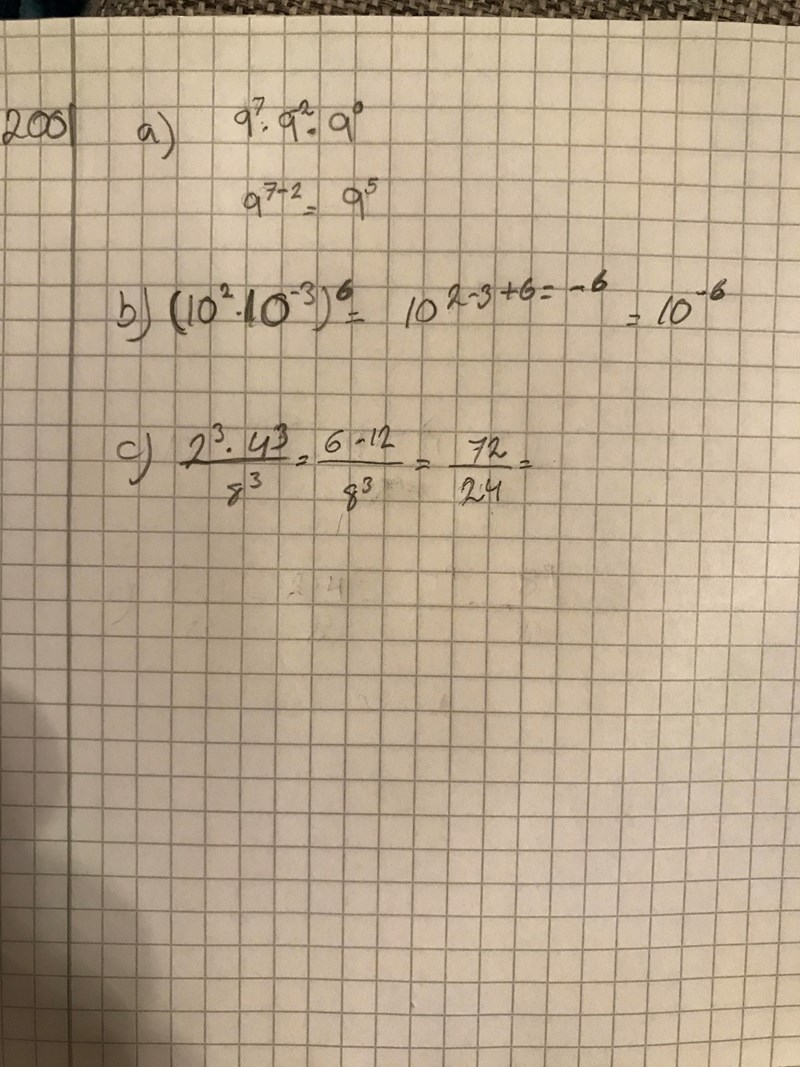 200 a) 9⁷ : 9² · 9⁰
9⁷⁻² = 9⁵
b) (10² · 10⁻³)⁶ = 10^2-3+6=-6 = 10⁻⁶
c) 2³ · 4³ / 8³ = 6 · 12 / 8³ = 72 / 24 =